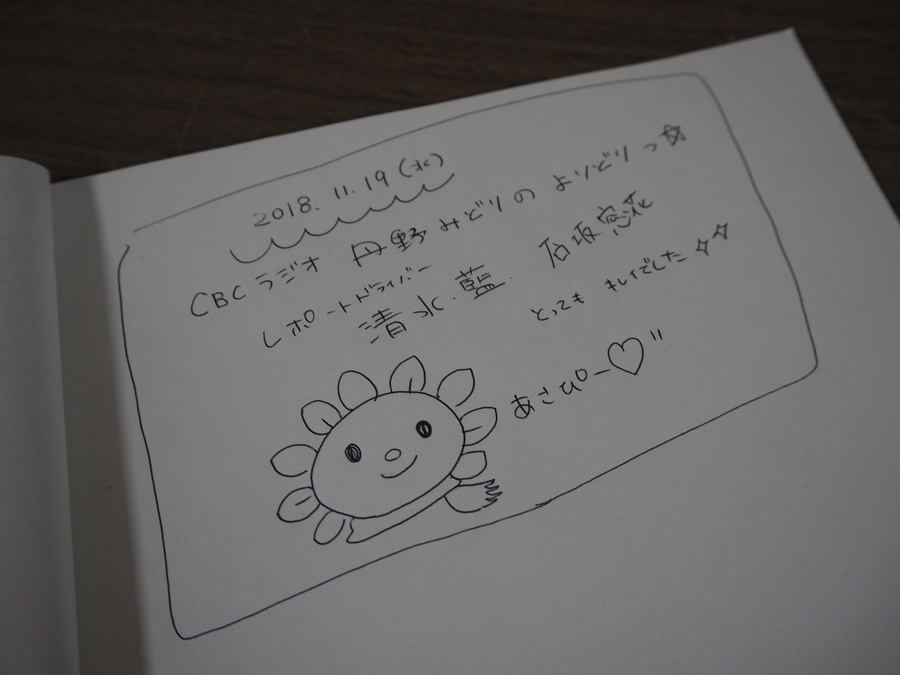 2018.11.19(水)
CBCラジオ 丹野みどりの よりどりっ☆
レポートドライバー
清水藍 石坂窓花
とっても キレイでした
あさぴー♡"